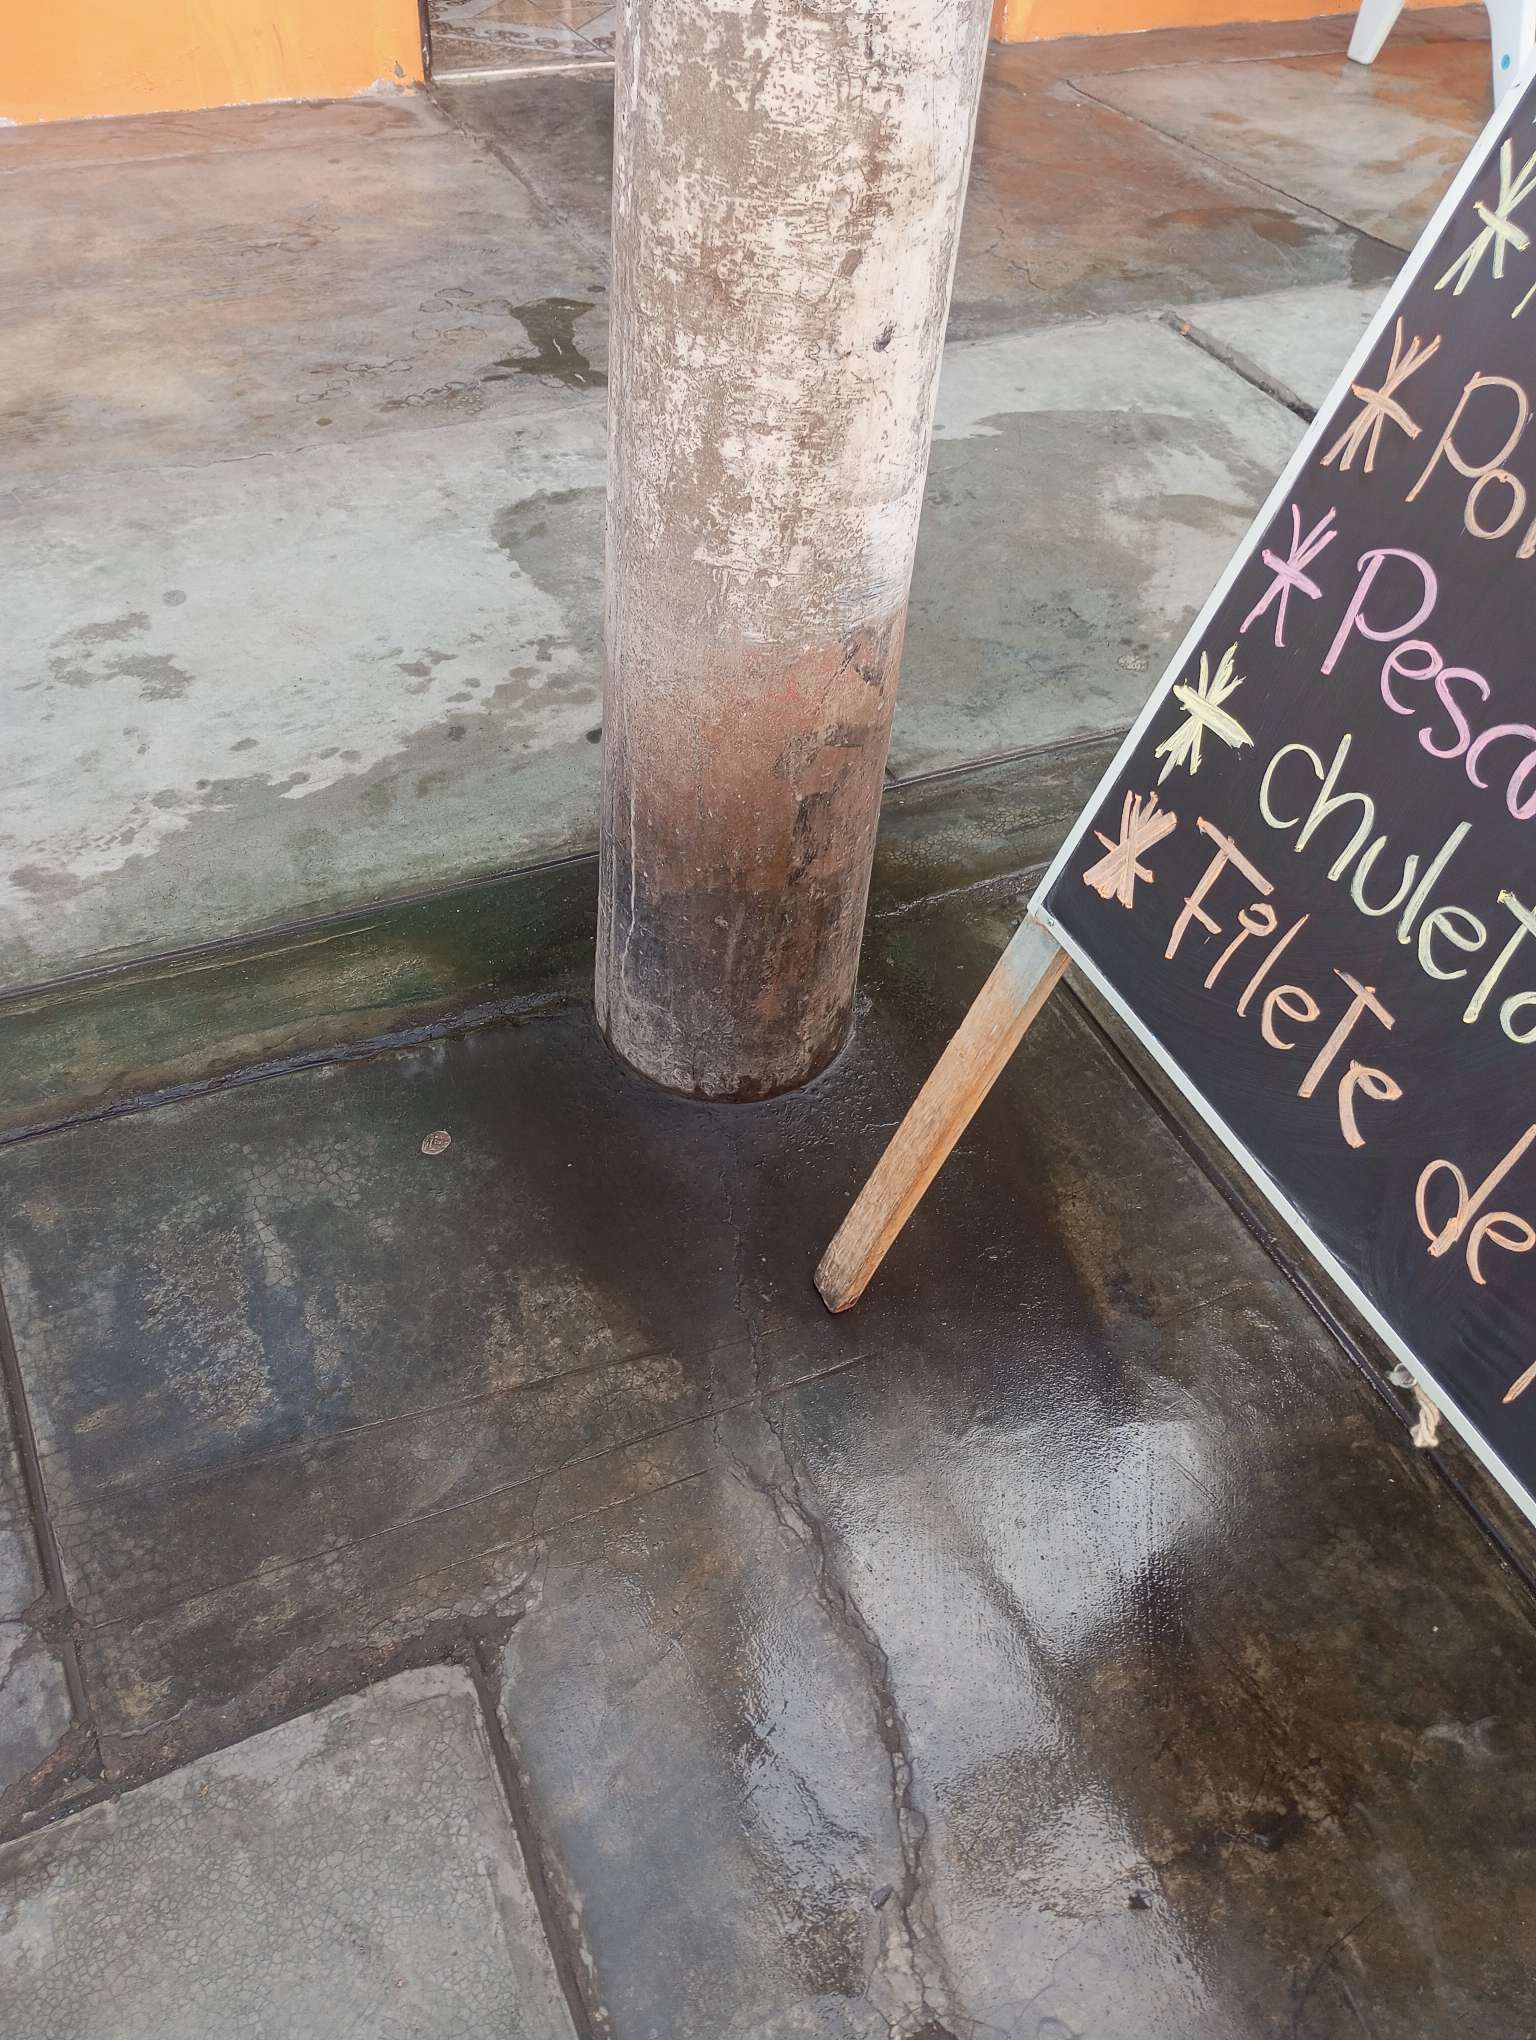 * Po
* Pesca
* chuleta
* Filete
de